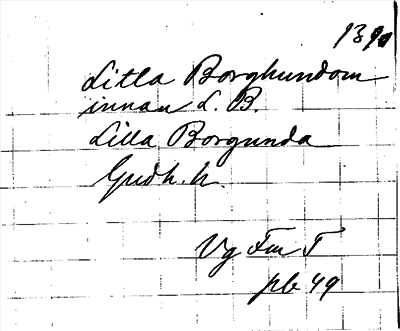 1390
Litla Borghundom
innan L. B.
Lilla Borgunda
Gudh. h.
Vg Fm T
pb 49